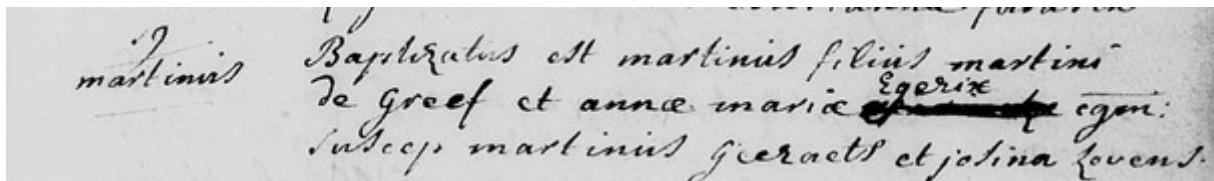 9
martinus
Baptizatus est martinus filius martini
de Greef et annæ mariæ Egerix egen:
suscep martinus Geeraets et josina Lovens.